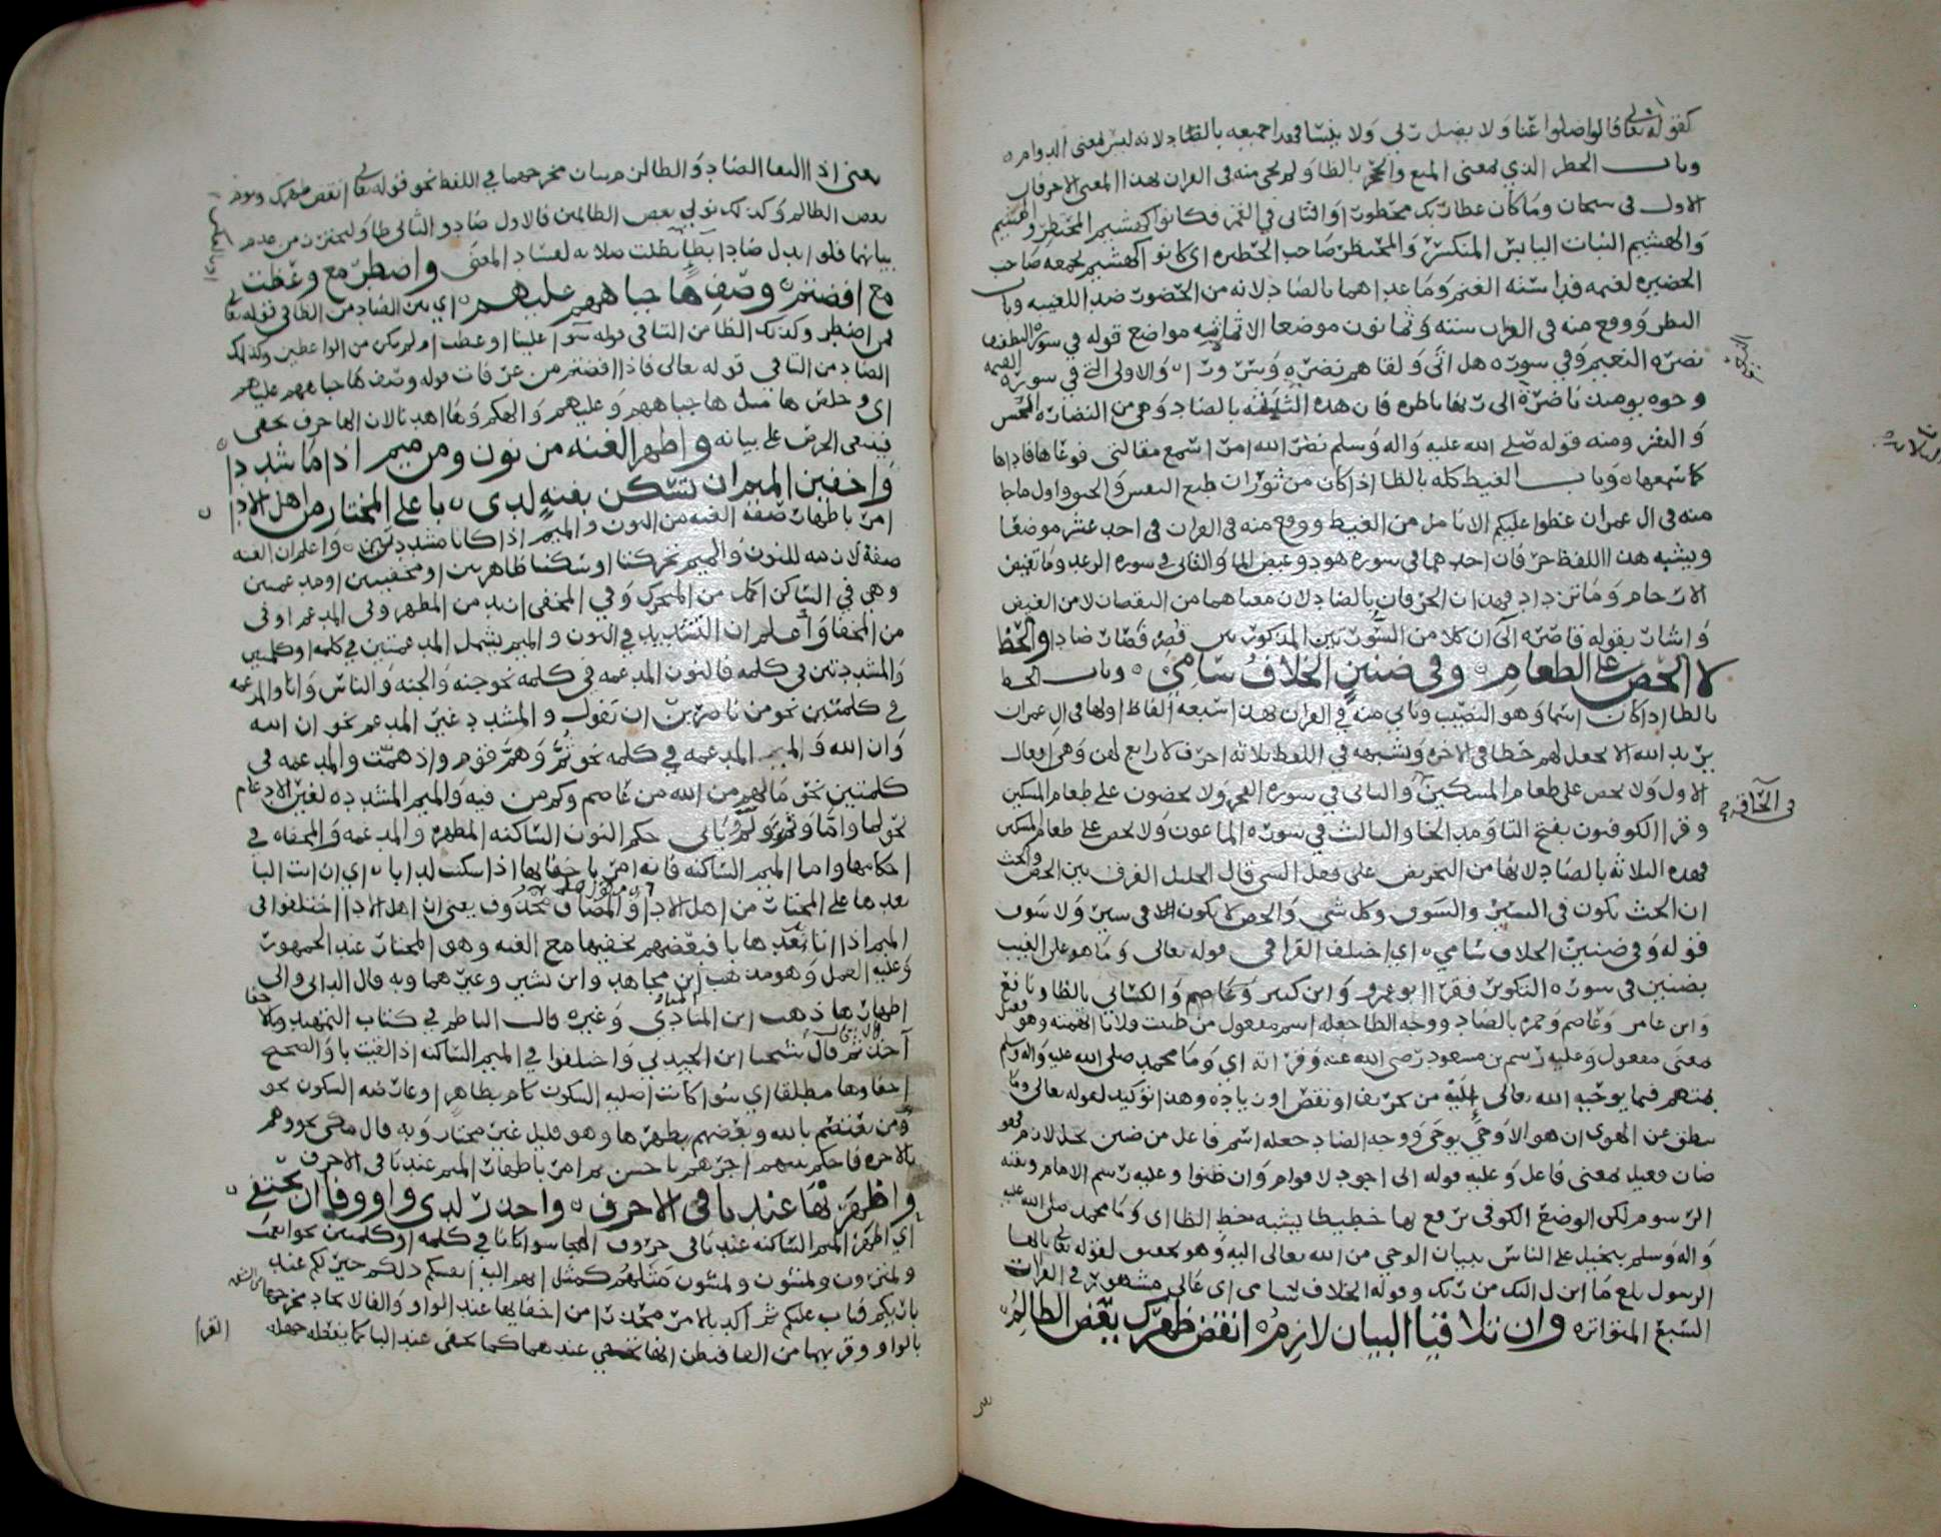 كقوله تعالى قالوا ضلوا عنا ولا يضل ربي ولا ينسا فهذا جميعه بالضاد لانه ليس بمعنى الدوام
وباب الحظر الذي بمعنى المنع والحجر بالظا ولم يجي منه في القران بهذا المعنى الا حرفان
الاول في سبحان وما كان عطا ربك محظورا والثاني في القمر فكانوا كهشيم المحتظر والهشيم
والهشيم النبات اليابس المتكسر والمحتظر صاحب الحظيره اي كانوا كهشيم يجمعه صاحب
الحضيره لغنمه وما عداهما بالضاد لانه من الحضور ضد الغيبه وباب
النظر ووقع منه في القران ستة وثمانون موضعا الا ثمانيه مواضع قوله في سورة التطفيف
نضرة النعيم وفي سورة هل اتى ولقاهم نضرة وسرورا والاولى التي في سورة القيمه
وجوه يومئذ ناضرة الى ربها ناظره فان هذه الثلثه بالضاد وهي من النضارة الحسن
ومنه قوله صلى الله عليه واله وسلم نضر الله امرا سمع مقالتي فوعاها فاداها
كما سمعها وباب الغيظ كله بالظا اذا كان من ثوران طبع النفس واول ما جا
منه في ال عمران عضوا عليكم الانامل من الغيظ ووقع منه في القران في احد عشر موضعا
ويشبه هذا اللفظ حرفان احدهما في سورة هود وغيض الما والثاني في سورة الرعد وما تغيض
الارحام وما تزداد فهذان الحرفان بالضاد لان معناهما من النقصان لا من الغيض
واشار بقوله قاصره الى ان كلا من السورتين المذكورتين قصر فصار ضادا والحظ
لا الحض على الطعام وفي ضنين الخلاف سامي وباب الحظ
بالظا اذا كان اسما وهو النصيب وياتي منه في القران بهذا سبعة الفاظ اولها في ال عمران
يريد الله الا يجعل لهم حظا في الاخره ويشبهه في اللفظ ثلاثه احرف لا رابع لهن وهي افعال
الاول ولا يحض على طعام المسكين والثاني في سورة الفجر ولا يحضون على طعام المسكين
في الحاقه
وقرا الكوفيون بفتح التا ومد الحا والثالث في سورة الماعون ولا يحض على طعام المسكين
فهذه الثلاثه بالضاد لانها من التحريض على فعل الشي قال الخليل الفرق بين الحض والحث
ان الحث يكون في السير والسوق وكل شي والحض لا يكون في سير ولا سوق
قوله وفي ضنين الخلاف سامي اي اختلف القرا في قوله تعالى وما هو على الغيب
بضنين في سورة التكوير فقرا ابو عمرو وابن كثير والكسائي بالظا ونافع
وابن عامر وعاصم وحمزه بالضاد ووجه الظا جعله اسم مفعول من ظننت فلانا اتهمته وهو فعيل
بمعنى مفعول وعليه رسم بن مسعود رضي الله عنه وقراته اي وما محمد صلى الله عليه واله وسلم
بمتهم فيما يوحيه الله تعالى اليه من تحريف او نقص او زياده وهذا توكيد لقوله تعالى وما
ينطق عن الهوى ان هو الا وحي يوحى ووجه الضاد جعله اسم فاعل من ضن بخل لازم فهو
ضان فعيل بمعنى فاعل وعليه رسم الامام وبقيه
الرسوم لكن الوضع الكوفي برفع لها خطيطا يشبه خط الظا اي وما محمد صلى الله عليه
واله وسلم ببخيل على الناس ببيان الوحي من الله تعالى اليه وهو تحقيق لقوله تعالى يايها
الرسول بلغ ما انزل اليك من ربك وقوله الخلاف سامي اي عالي مشهور في القراات
السبع المتواتره وان تلاقيا البيان لازم انقض ظهرك يعض الظالم
يعني اذا التقا الضاد والظا لزم بيان مخرجهما في اللفظ نحو قوله تعالى انقض ظهرك ويوم
يعض الظالم وكذلك نولي بعض الظالمين فالاول ضاد والثاني ظا وليحترز من عدم
بيانهما فلو ابدل ضادا بظا بطلت صلاته لفساد المعنى واضطر مع وعظت
مع افضتم وصف ها جباههم عليهم اي بين الضاد من الطا في قوله تعالى
فمن اضطر وكذلك الظا من التا في قوله سوا علينا اوعظت ام لم تكن من الواعظين وكذلك
الضاد من التا في قوله تعالى فاذا افضتم من عرفات قوله وصف ها جباههم عليهم
اي وخلص ها مثل ها جباههم وعليهم والهكم وهذا لان الها حرف خفي
فينبغي الحرص على بيانه واظهر الغنه من نون ومن ميم اذا ما شددا
واخفين الميم ان تسكن بغنة لدى با على المختار من اهل الادا
امر باظهار صفة الغنه من النون والميم اذا كانا مشددتين واعلم ان الغنه
صفة لازمه للنون والميم تحركتا او سكنتا ظاهرتين او مخفيتين او مدغمتين
وهي في الساكن اكمل من المتحرك وفي المخفى ازيد من المظهر وفي المدغم اوفى
من المخفا واعلم ان التشديد في النون والميم يشمل المدغمتين في كلمه او كلمتين
والمشددتين في كلمه فالنون المدغمه في كلمه نحو جنه والجنه والناس وانا والمدغمه
في كلمتين نحو من ناصرين ان نقول والمشدد غير المدغم نحو ان الله
وان الله والميم المدغمه في كلمه نحو ثم وهم قوم واذ همت والمدغمه في
كلمتين نحو مالهم من الله من عاصم وكم من فيه والميم المشدده لغير الادغام
نحو لما واما وثم وياتي حكم النون الساكنه المظهره والمدغمه والمخفاه في
احكامها واما الميم الساكنه فانه امر باخفائها اذا سكنت لدا با اي ان اتت البا
بعدها على المختار من اهل الادا والمضاف محذوف يعني ان اهل الادا اختلفوا في
الميم اذا اتا بعدها با فبعضهم يخفيها مع الغنه وهو المختار عند الجمهور
وعليه العمل وهو مذهب ابن مجاهد وابن بشير وغيرهما وبه قال الداني والى
اظهارها ذهب ابن المنادي وغيره قال الناظم في كتاب التمهيد وبالاخفا
اخذ ثم قال شيخنا ابن الجندي واختلفوا في الميم الساكنه اذا لقيت با والصحيح
اخفاوها مطلقا اي سوا كانت اصليه السكون كام بظاهر او عارضه السكون نحو
ومن يعتصم بالله وبعضهم يظهرها وهو قليل غير مختار وبه قال مكي نحو وهم
بالاخره فاحكم بينهم اجرهم باحسن ثم امر باظهار الميم عند باقي الاحرف
واظهرنها عند باقي الاحرف واحذر لدى واو وفا ان تختفي
اي اظهر الميم الساكنه عند باقي حروف الهجا سوا كانا في كلمه او كلمتين نحو انعمت
ويمترون ويمشون مثلهم كمثل انفسكم ذلكم خير لكم عند
بارئكم فتاب عليكم ثم اكد بالامر محذرا من اخفائها عند الواو والفا لاتحاد مخرجها
بالواو وقربها من الفا فيظن انها تخفى عندهما كما تخفى عند البا كما يفعله جهله
القرا